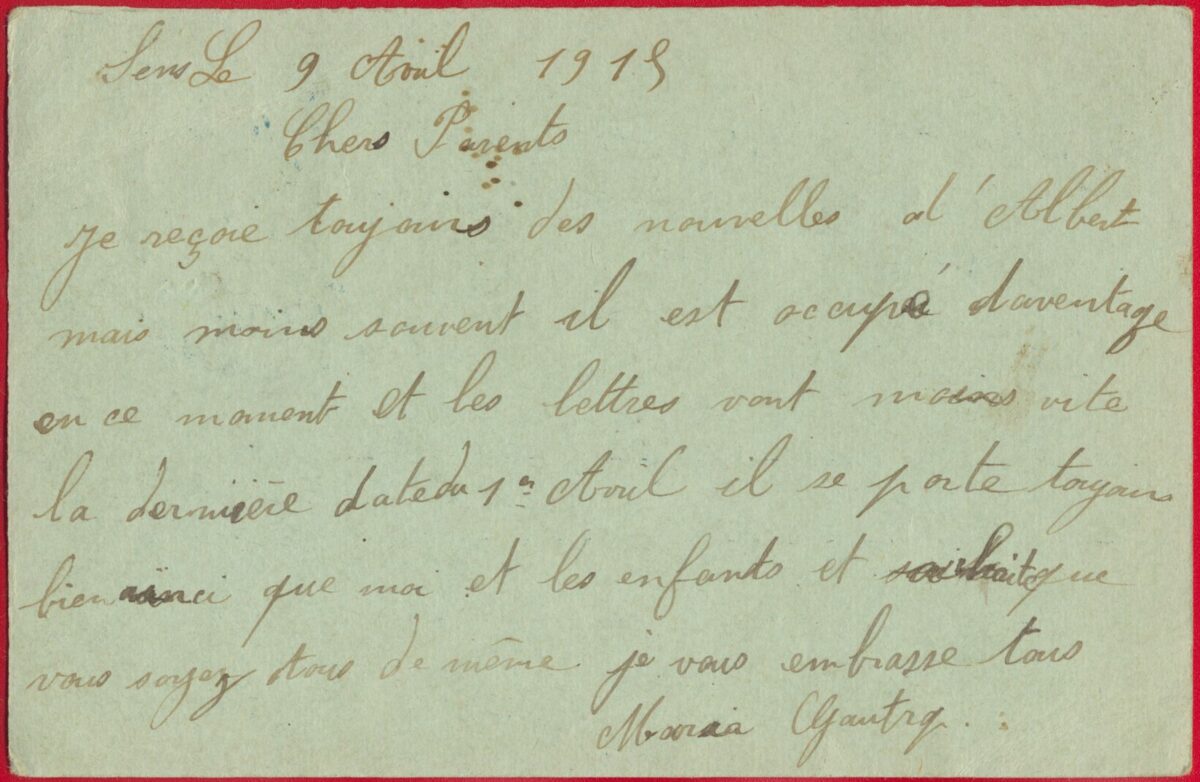 Sens Le 9 Avril 1915
Chers Parents
Je reçoie toujours des nouvelles d'Albert
mais moins souvent il est occupé daventage
en ce moment et les lettres vont moins vite
la dernière date du 1er Avril il se porte toujours
bien ainci que moi et les enfants et souhaite que
vous soyez tous de même je vous embrasse tous
Maria